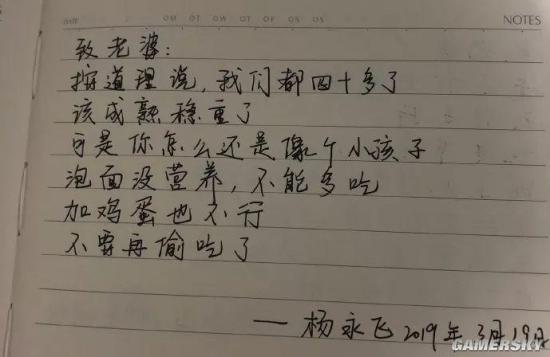 DATE MO TU WE TH FR SA SU NOTES
致老婆:
按道理说,我们都四十多了
该成熟稳重了
可是你怎么还是像个小孩子
泡面没营养,不能多吃
加鸡蛋也不行
不要再偷吃了
——杨永飞2019年3月19日
GAMERSKY